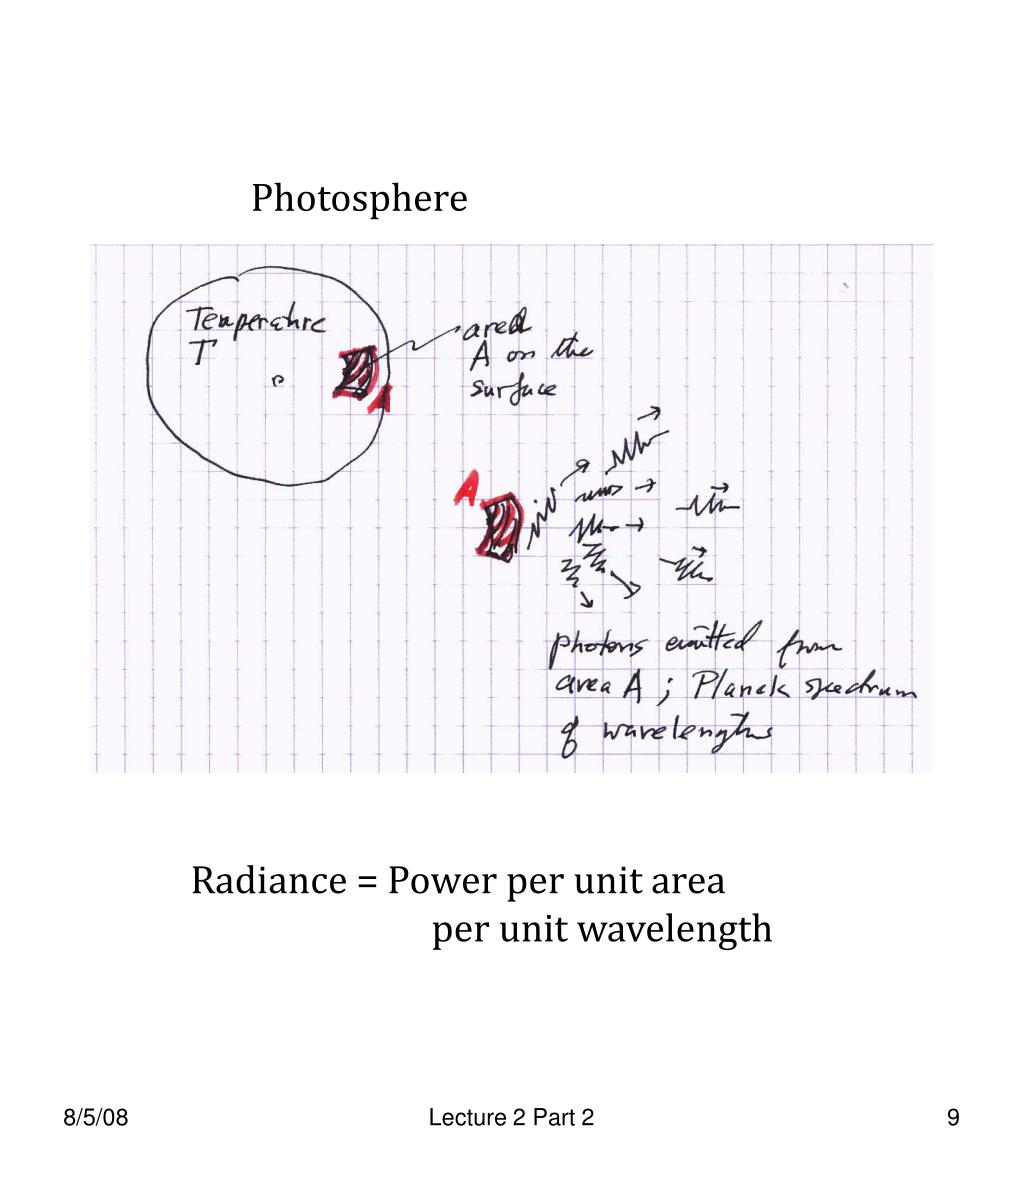 Photosphere
Temperature
T
area
A on the
surface
A
A
photons emitted from
area A ; Planck spectrum
of wavelengths
Radiance = Power per unit area
per unit wavelength
8/5/08
Lecture 2 Part 2
9